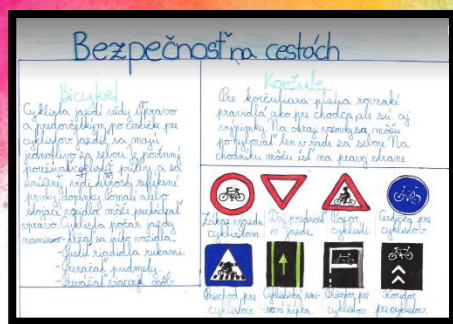 Bezpečnosť na cestách
Bicykel
Cyklista jazdí vždy vpravo
a predovšetkým po cestičke pre
cyklistov. Jazdiť sa majú
jednotlivo za sebou. Povinný
používať cyklisti prilbu a za
zníženej viditeľnosti reflexné
prvky, doplnky. Pomaly alebo
stojace vozidlo môže predchádzať
vpravo. Cyklista počas jazdy
nesmie: - držať sa iného vozidla.
- Pustiť riadidlá rukami.
- Prevážať predmety.
- Prevážať viacej osôb.
Korčule
Pre korčuliara platia rovnaké
pravidlá ako pre chodca, ale sú aj
výnimky. Na okraji vozovky sa môžu
pohybovať len v rade za sebou. Na
chodníku môžu ísť na pravej strane.
Zákaz vjazdu
cyklistom.
Daj prednosť
v jazde.
Pozor,
cyklisti.
Cestička pre
cyklistov.
Priechod pre
cyklistov.
Cyklistická
šípka.
Priestor pre
cyklistov.
Koridor
pre cyklistov.